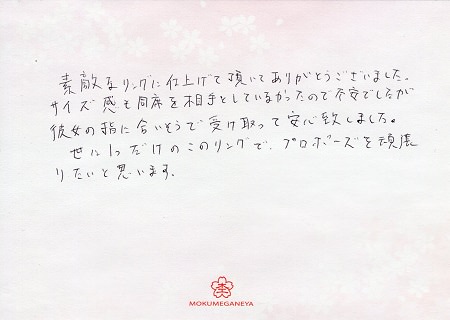 素敵なリングに仕上げて頂いてありがとうございました。
サイズ感も同席を相手としていなかったので不安でしたが
彼女の指に合いそうで受け取って安心致しました。
世に1つだけのこのリングで、プロポーズを頑張
りたいと思います。
MOKUMEGANEYA